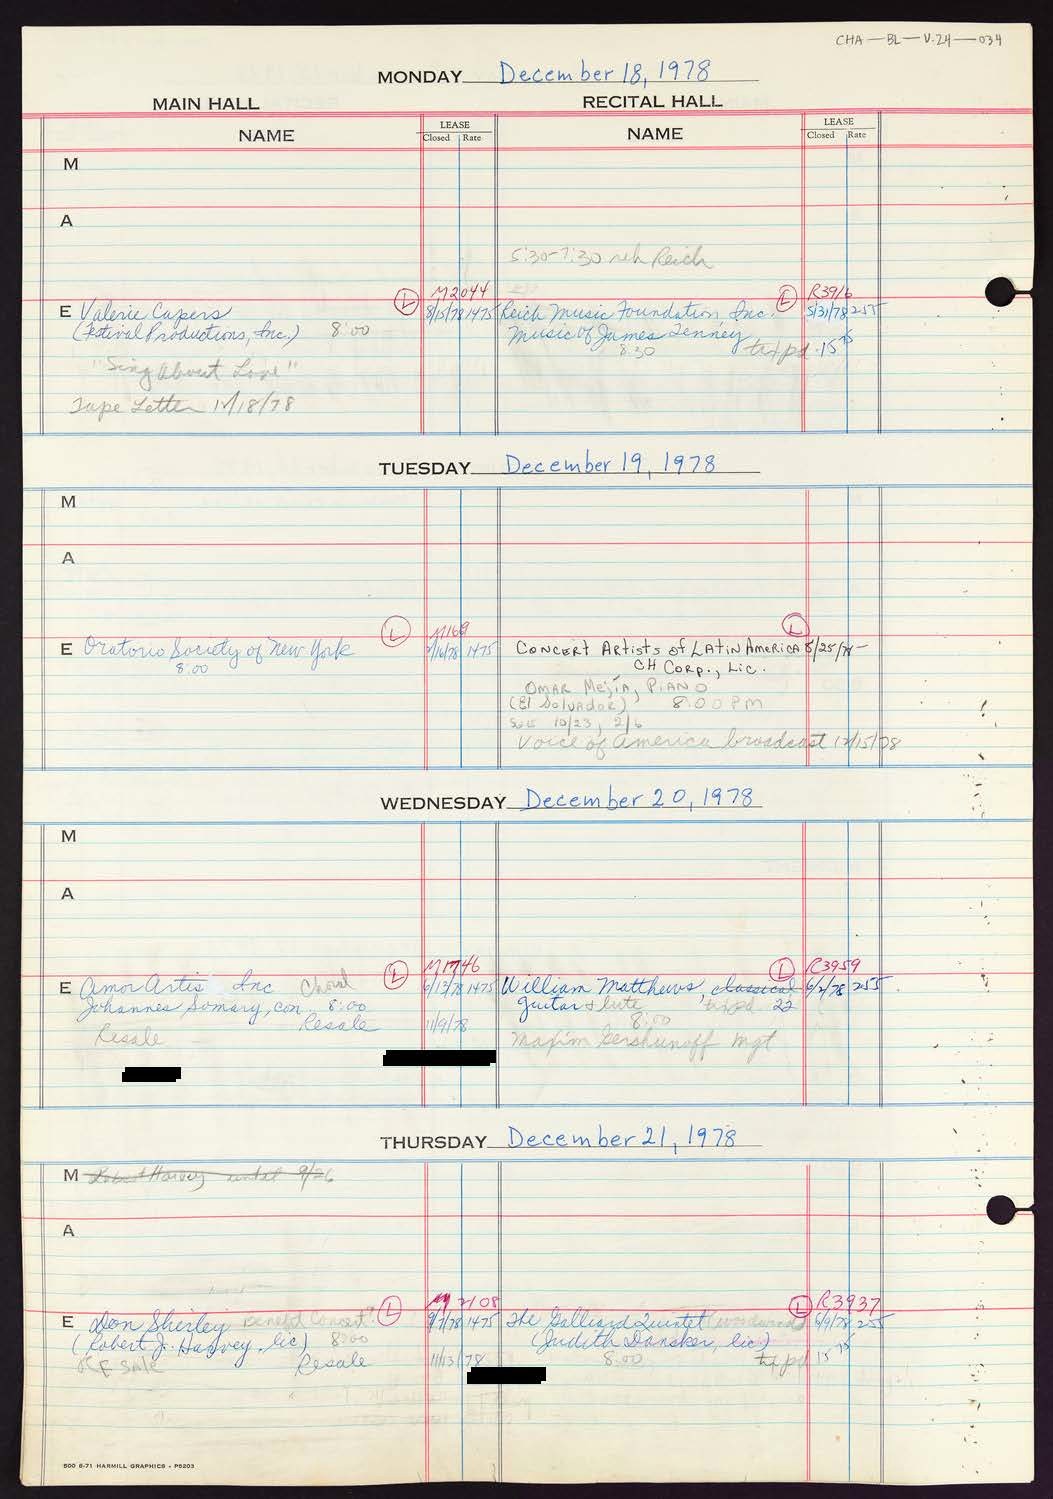 CHA—BL—V.24—034
MONDAY December 18, 1978
MAIN HALL RECITAL HALL
NAME LEASE Closed Rate NAME LEASE Closed Rate
M
A
5:30-7:30 reh Reich
L M2044 L R3916
E Valerie Capers 8/15/78 1475 Reich Music Foundation, Inc. 5/31/78 255
(Festival Productions, Inc.) 8:00 Music of James Tenney
8:30 tx pd. 15 75
"Sing About Love"
Tape Letter 12/18/78
TUESDAY December 19, 1978
M
A
L M169 L
E Oratorio Society of New York 1475 Concert Artists of Latin America 8/25/78 —
8:00 CH Corp., Lic.
Omar Mejía, Piano
(El Salvador) 8:00 PM
10/23, 2/6
Voice of America broadcast 12/15/78
WEDNESDAY December 20, 1978
M
A
L M1746 L R3959
E Amor Artis Inc Choral 6/13/78 1475 William Matthews classical 6/2/78 255
Johannes Somary, con. 8:00 guitar & lute tx pd. 22
Resale 11/9/78 8:00
Resale Maxim Gershunoff mgt
THURSDAY December 21, 1978
M Robert Harvey until 9/26
A
L M2108 L R3937
E Don Shirley Benefit Concert? 9/7/78 1475 The Galliard Quintet (woodwinds) 6/9/78 255
(Robert J. Harvey, lic) 8:00 (Judith Dansker, lic)
Off Sale Resale 11/13/78 8:00 tx pd 15 75
500 6-71 HARMILL GRAPHICS - P5203